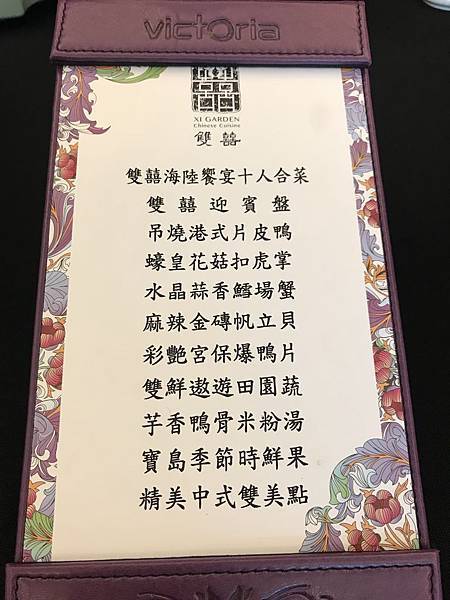 victoria
囍
XI GARDEN
Chinese Cuisine
雙囍
雙囍海陸饗宴十人合菜
雙囍迎賓盤
吊燒港式片皮鴨
蠔皇花菇扣虎掌
水晶蒜香鱈場蟹
麻辣金磚帆立貝
彩艷宮保爆鴨片
雙鮮遨遊田園蔬
芋香鴨骨米粉湯
寶島季節時鮮果
精美中式雙美點